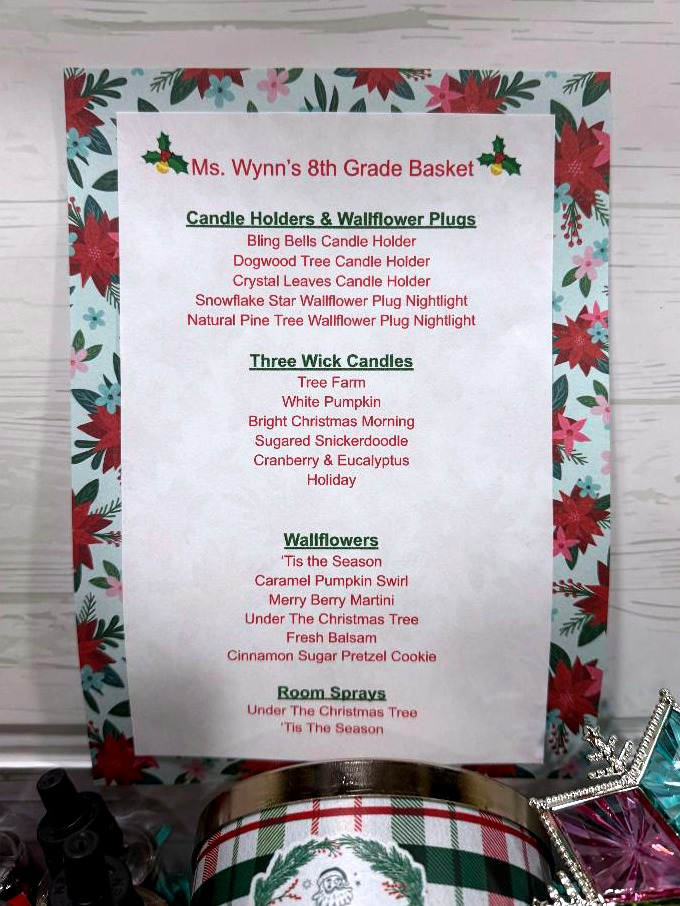 Ms. Wynn's 8th Grade Basket
Candle Holders & Wallflower Plugs
Bling Bells Candle Holder
Dogwood Tree Candle Holder
Crystal Leaves Candle Holder
Snowflake Star Wallflower Plug Nightlight
Natural Pine Tree Wallflower Plug Nightlight
Three Wick Candles
Tree Farm
White Pumpkin
Bright Christmas Morning
Sugared Snickerdoodle
Cranberry & Eucalyptus
Holiday
Wallflowers
'Tis the Season
Caramel Pumpkin Swirl
Merry Berry Martini
Under The Christmas Tree
Fresh Balsam
Cinnamon Sugar Pretzel Cookie
Room Sprays
Under The Christmas Tree
'Tis The Season